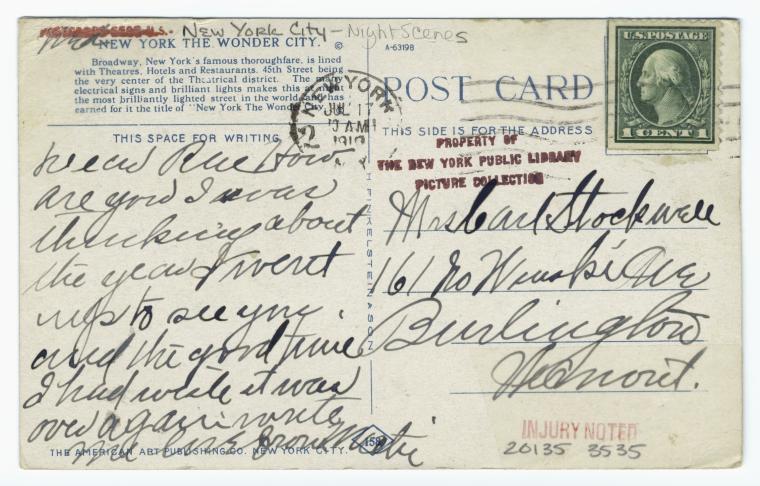 POSTCARDS U.S. - New York City - Night Scenes
NEW YORK THE WONDER CITY. ©
A-63198
Broadway, New York's famous thoroughfare, is lined
with Theatres, Hotels and Restaurants. 45th Street being
the very center of the Theatrical district. The many
electrical signs and brilliant lights makes this at night
the most brilliantly lighted street in the world and has
earned for it the title of "New York The Wonder City."
NEW YORK
JUL 17
AM
N.Y.
U.S. POSTAGE
1 CENT 1
POST CARD
THIS SPACE FOR WRITING
THIS SIDE IS FOR THE ADDRESS
PROPERTY OF
THE NEW YORK PUBLIC LIBRARY
PICTURE COLLECTION
Dear How
are you I was
thinking about
the year I went
up to see you.
and the good time
I had wish it was
over again write
me love from
Mrs Carl Stockwell
161 No Winuski Ave
Burlington
Vermont.
H FINKELSTEIN & SON
158
THE AMERICAN ART PUBLISHING CO. NEW YORK CITY.
INJURY NOTED
20135 3535